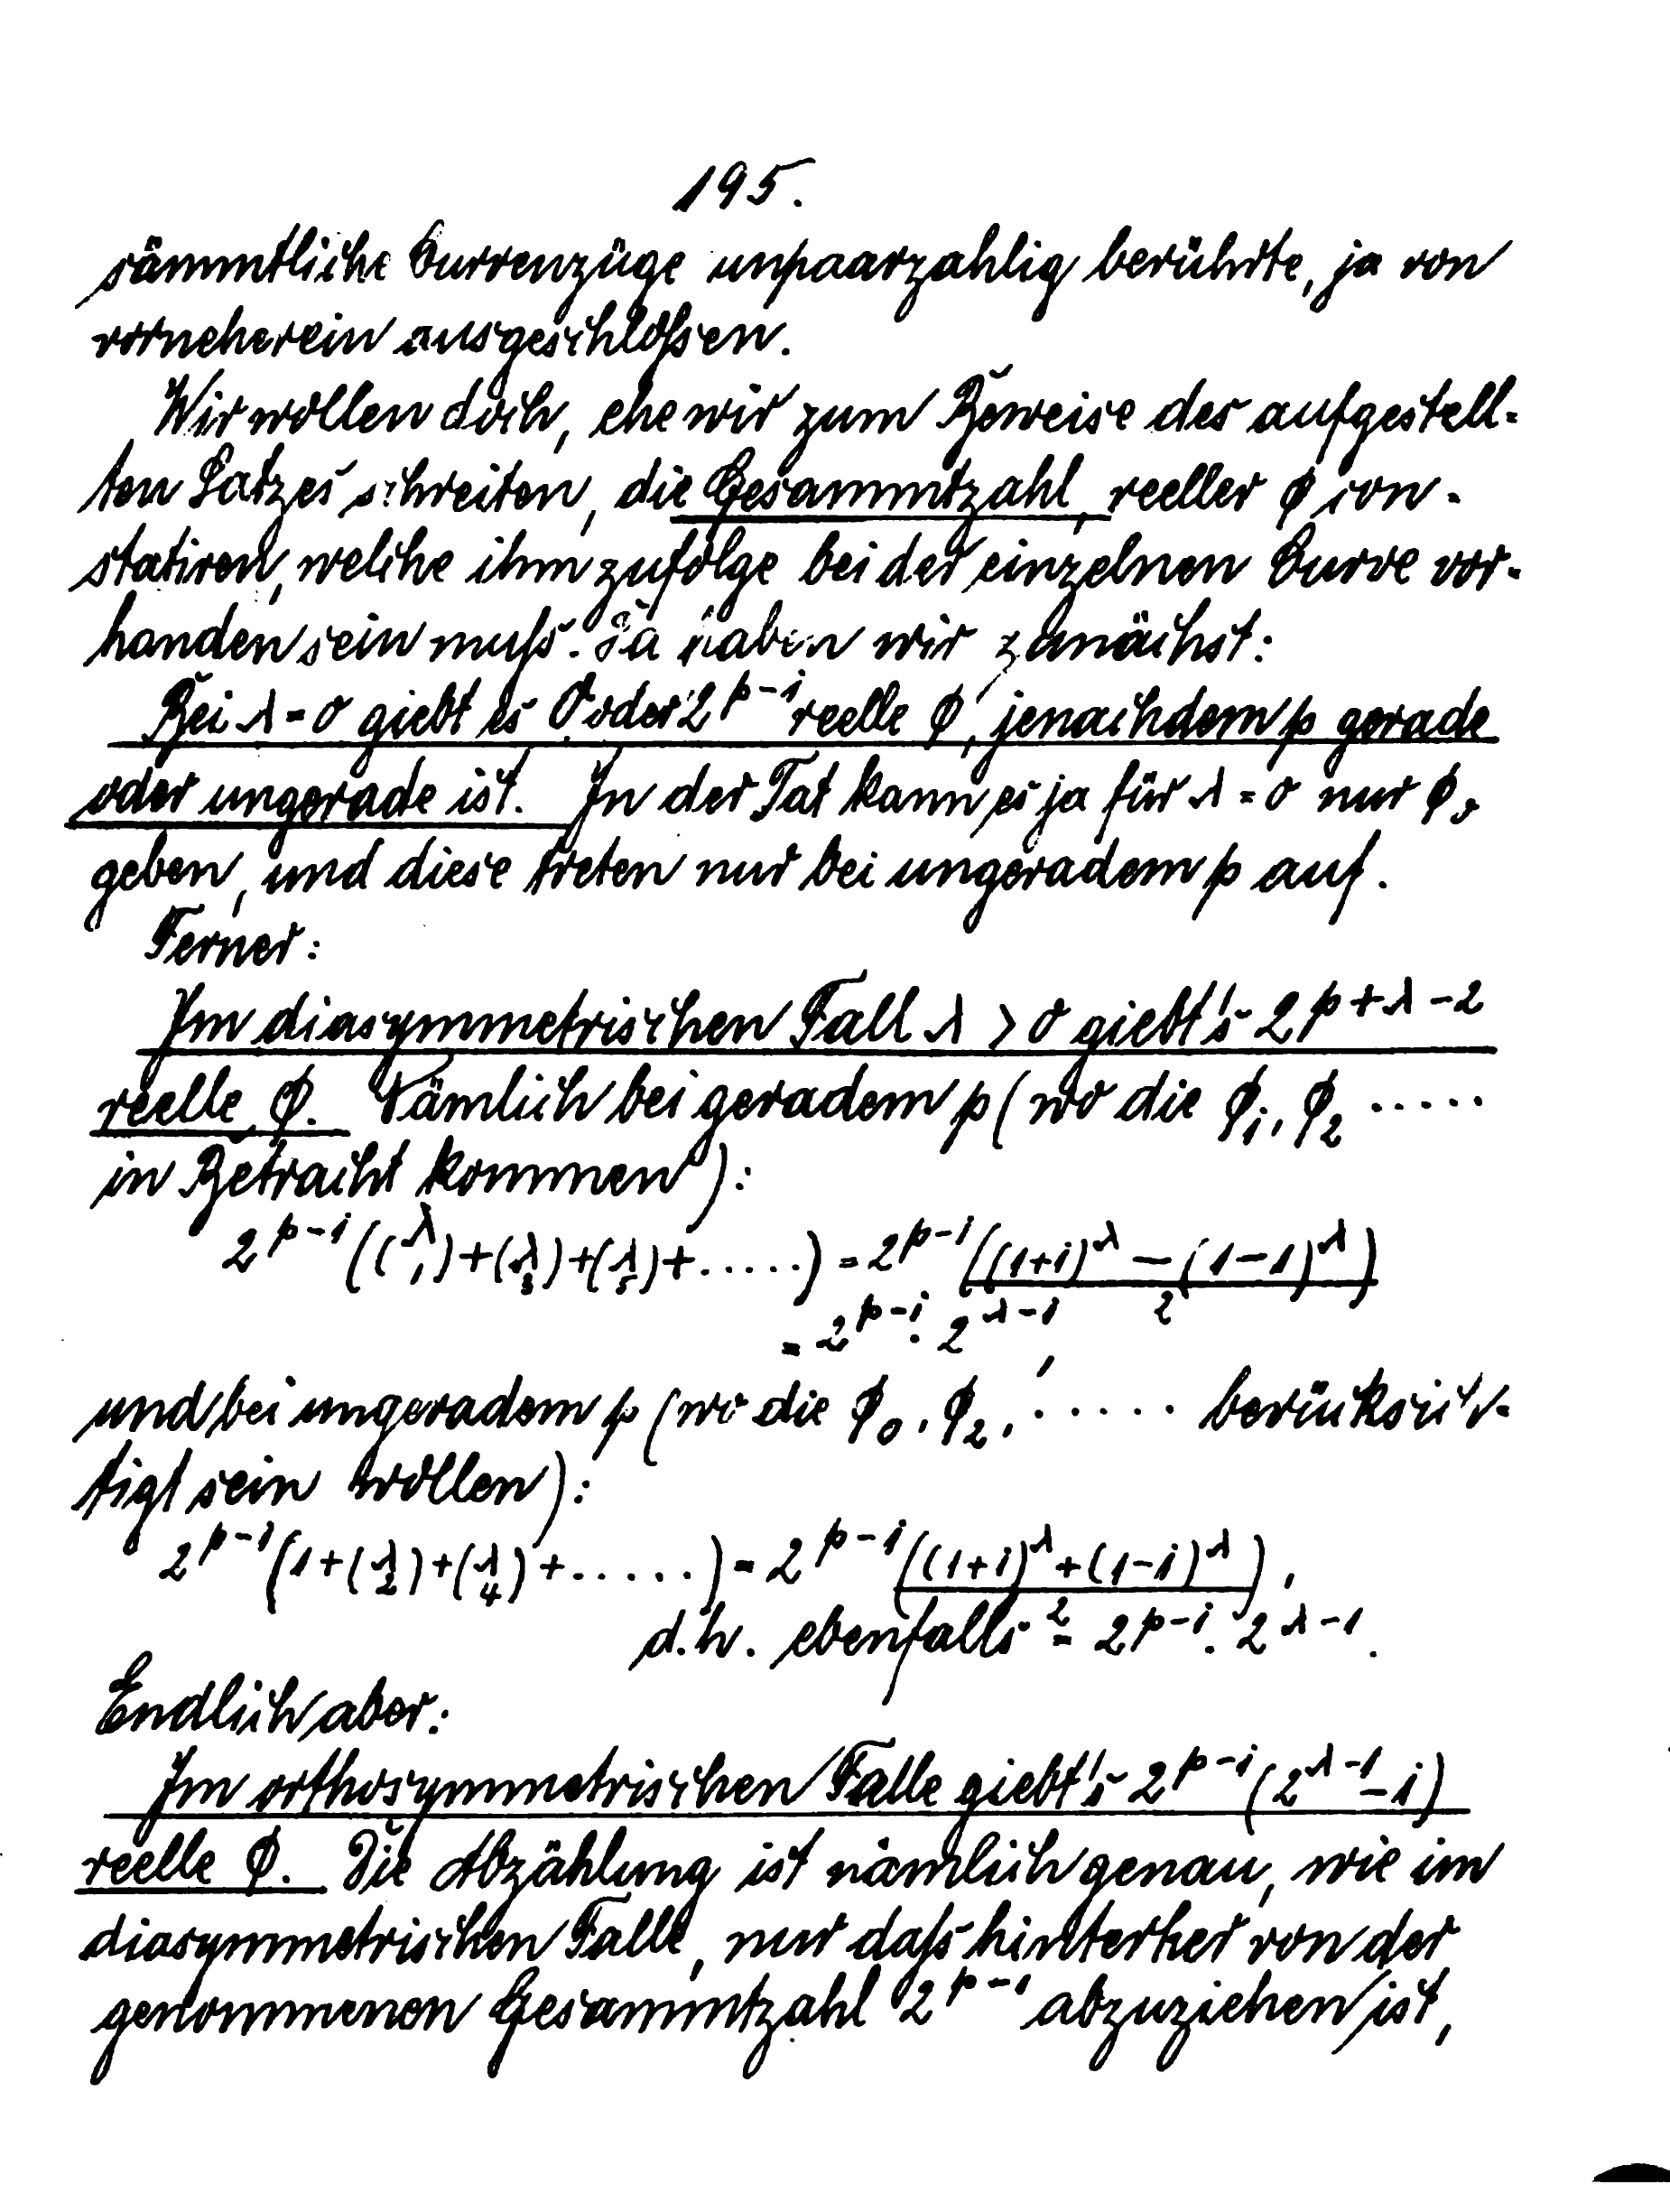 195.
sämmtliche Curvenzüge unpaarzahlig berührte, ja von
vorneherein ausgeschloßen.
Wir wollen doch, ehe wir zum Beweise des aufgestell-
ten Satzes schreiten, die Gesammtzahl, reeller ϕ con-
statiren, welche ihm zufolge bei der einzelnen Curve vor-
handen sein muß. Da haben wir zunächst:
Bei λ = 0 giebt es 0 oder 2^{p-1} reelle ϕ, jenachdem p gerade
oder ungerade ist. In der Tat kann es ja für λ = 0 nur ϕ_0
geben, und diese treten nur bei ungeradem p auf.
Ferner:
Im diasymmetrischen Fall λ > 0 giebt's 2^{p+λ-2}
reelle ϕ. Nämlich bei geradem p (wo die ϕ_1, ϕ_2 .....
in Betracht kommen):
2^{p-1}((λ 1)+(λ 3)+(λ 5)+.....) = 2^{p-1}((1+1)^λ - (1-1)^λ)/2
= 2^{p-1}. 2^{λ-1},
und bei ungeradem p (wo die ϕ_0, ϕ_2, ..... berücksich-
tigt sein wollen):
2^{p-1}(1+(λ 2)+(λ 4)+.....) = 2^{p-1}((1+1)^λ+(1-1)^λ)/2,
d.h. ebenfalls = 2^{p-1}. 2^{λ-1}.
Endlich aber:
Im orthosymmetrischen Falle giebt's 2^{p-1}(2^{λ-1}-1)
reelle ϕ. Die Abzählung ist nämlich genau, wie im
diasymmetrischen Falle, nur daß hinterher von der
genommenen Gesammtzahl 2^{p-1} abzuziehen ist,